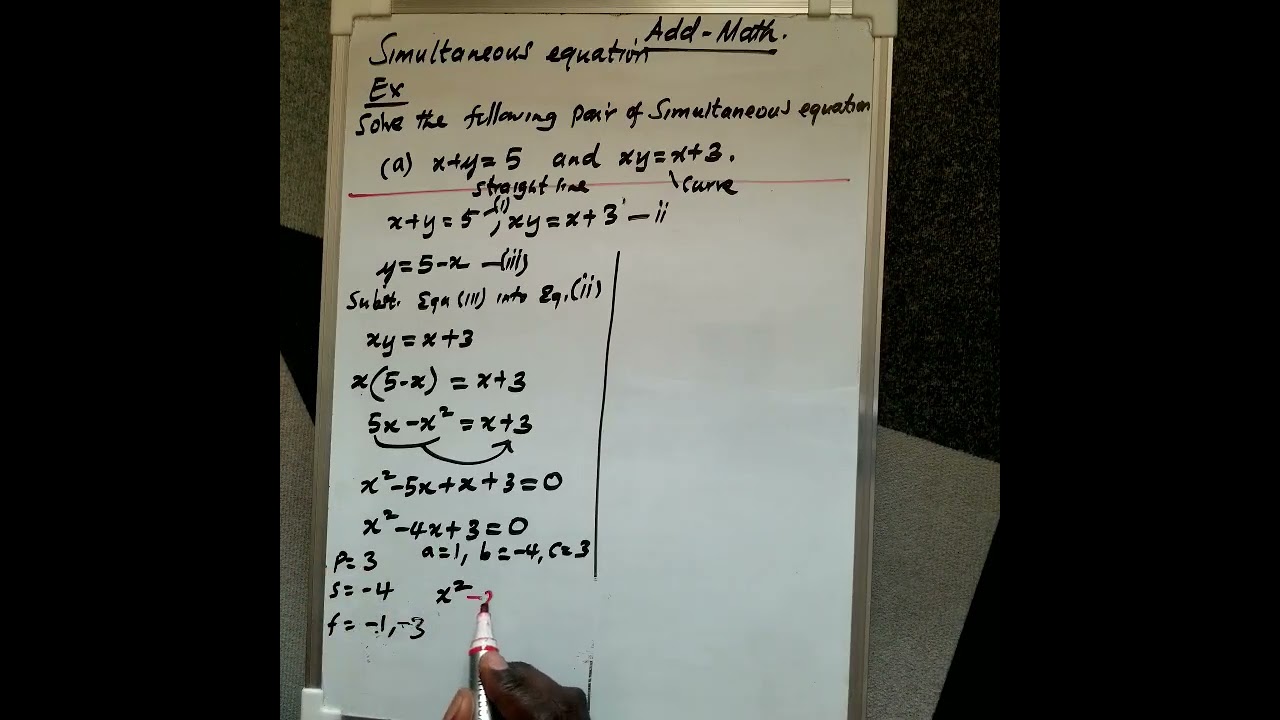 Add-Math.
Simultaneous equation
Ex
Solve the following pair of Simultaneous equation
(a) x+y=5 and xy=x+3.
straight line
curve
x+y=5 -(i), xy=x+3 - ii
y=5-x -(iii)
Subst. Eqn (iii) into Eq.(ii)
xy=x+3
x(5-x) = x+3
5x-x²=x+3
x²-5x+x+3=0
x²-4x+3=0
P=3 a=1, b=-4, c=3
S=-4 x²-
f= -1,-3